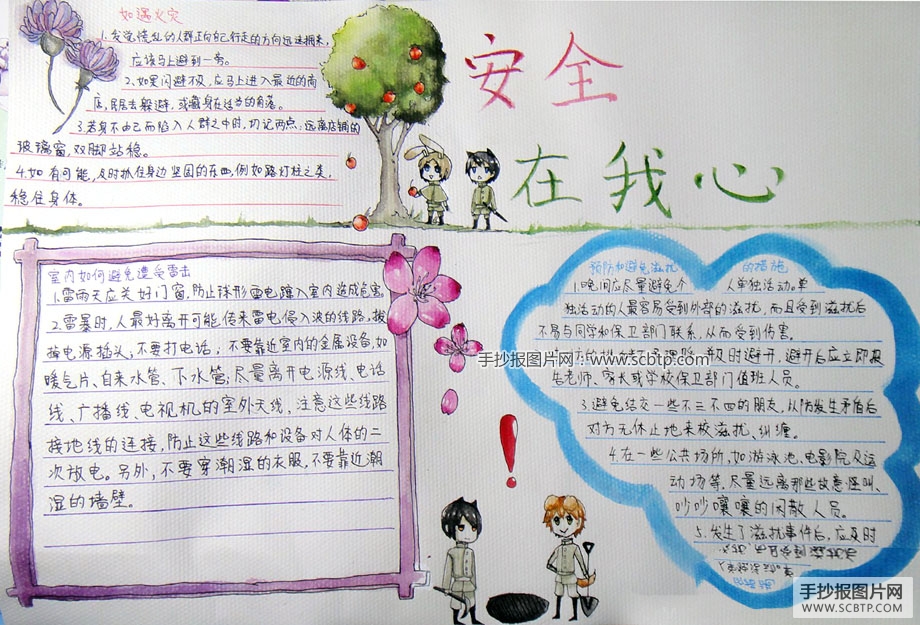 安全
在我心
如遇火灾
1.发觉慌乱的人群正向自己行走的方向迅速拥来,
应该马上避到一旁。
2.如果闪避不及,应马上进入最近的商
店,民居去躲避,或藏身在过节的角落。
3.若身不由己而陷入人群之中时,切记两点:远离店铺的
玻璃窗,双脚站稳。
4.如有可能,及时抓住身边坚固的东西,例如路灯柱之类,
稳住身体。
室内如何避免遭受雷击
1.雷雨天应关好门窗,防止球形雷电蹿入室内造成危害
2.雷暴时,人最好离开可能传来雷电侵入波的线路,拔
掉电源插头,不要打电话,不要靠近室内的金属设备,如
暖气片、自来水管、下水管;尽量离开电源线、电话
线、广播线、电视机的室外天线,注意这些线路
接地线的连接,防止这些线路和设备对人体的二
次放电。另外,不要穿潮湿的衣服,不要靠近潮
湿的墙壁。
预防和避免滋扰的措施
1.晚间应尽量避免个人单独活动。单
独活动的人最容易受到外部的滋扰,而且受到滋扰后
不易与同学和保卫部门联系,从而受到伤害。
及时避开,避开后应立即报
告老师、家长或学校保卫部门值班人员。
3.避免结交一些不三不四的朋友,以防发生矛盾后
对方无休止地来校滋扰、纠缠。
4.在一些公共场所,如游泳池、电影院及运
动场等,尽量远离那些故意怪叫、
吵吵嚷嚷的闲散人员。
5.发生了滋扰事件后,应及时
手抄报图片网:www.scbtp.com
手抄报图片网
WWW.SCBTP.COM